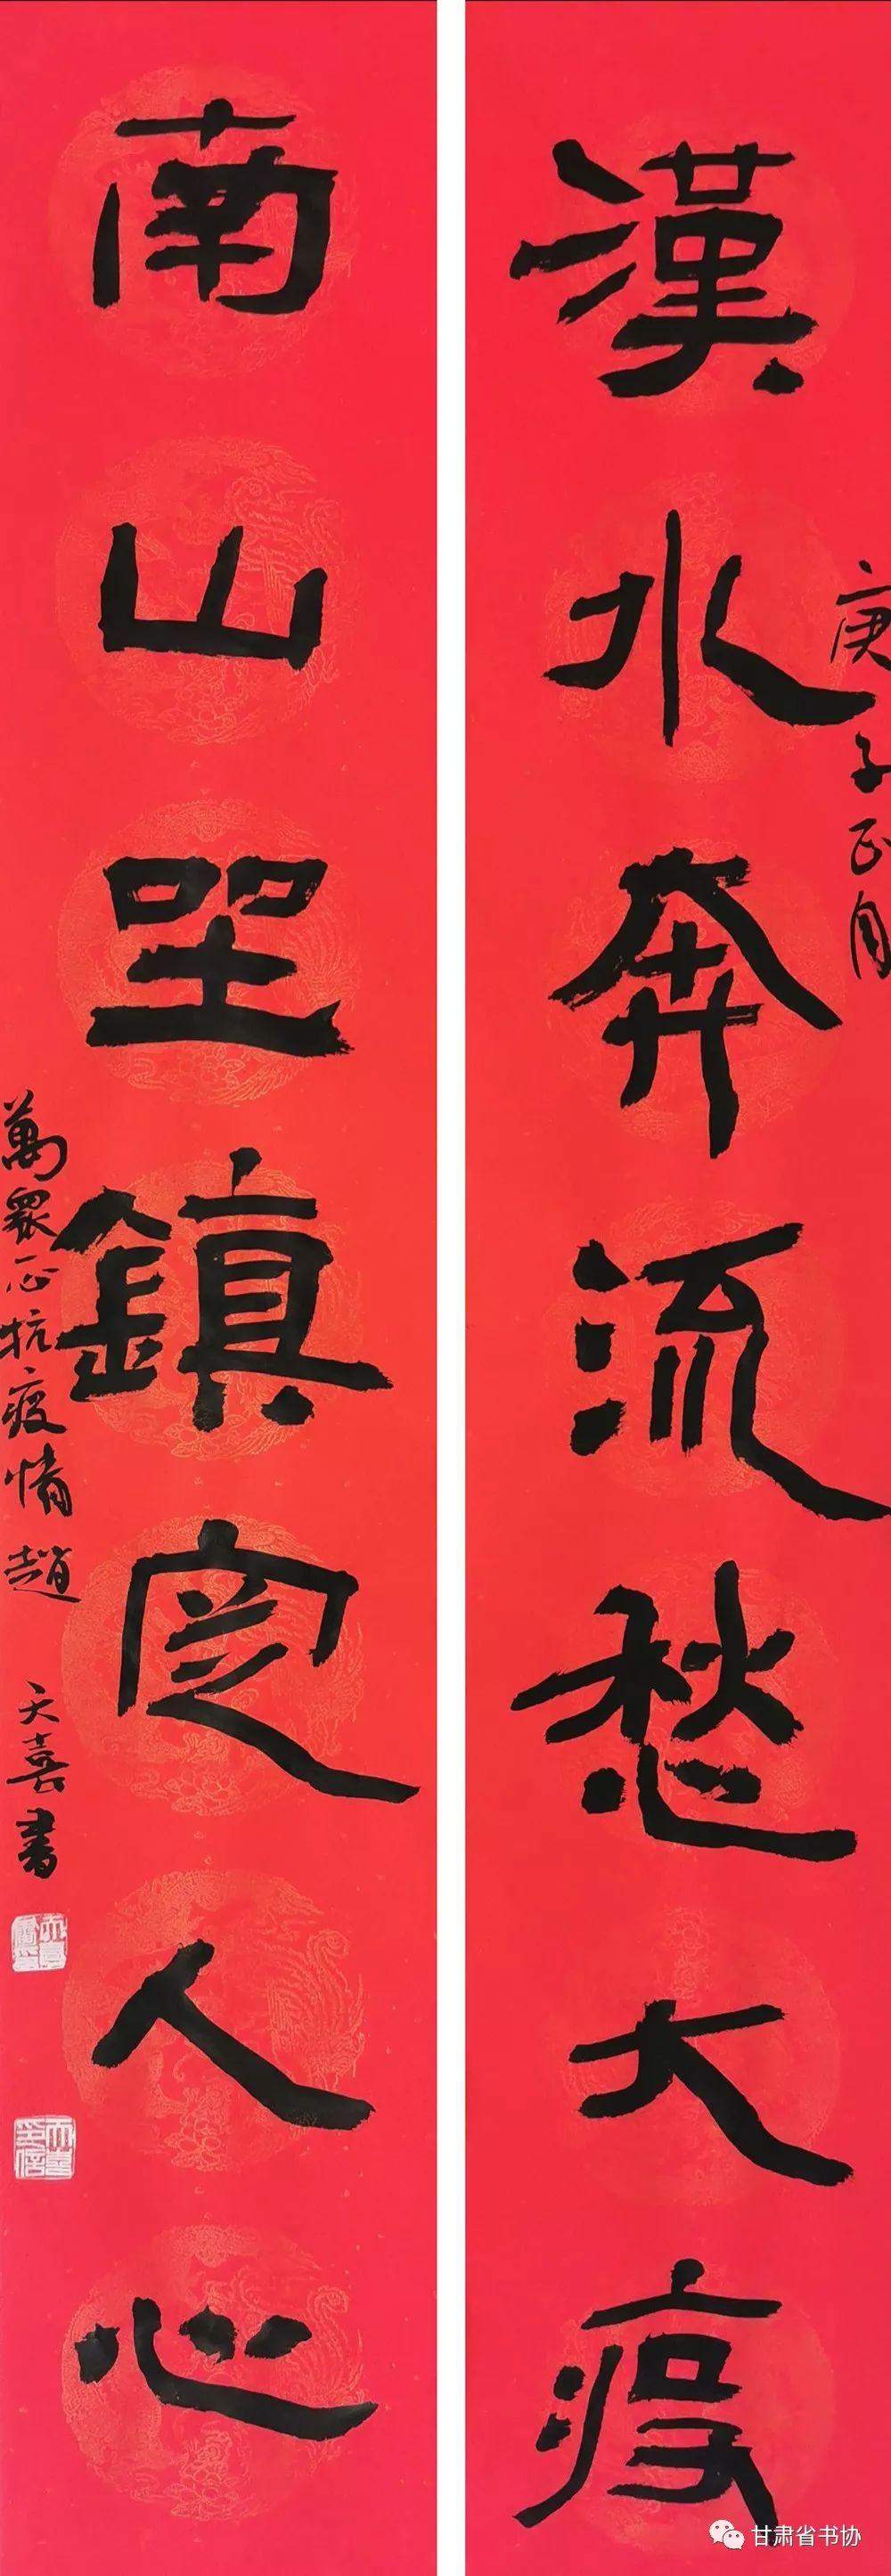 漢水奔流愁大疫
庚子正月
南山坐鎮定人心
萬眾一心抗疫情 趙天喜書
甘肃省书协